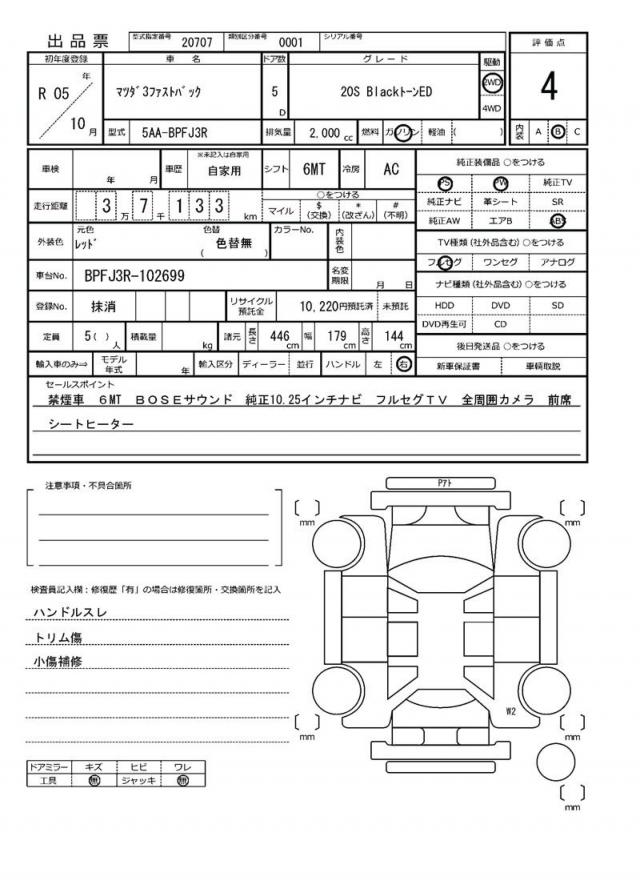 出品票 型式指定番号 20707 類別区分番号 0001 シリアル番号
初年度登録 車名 ドア数 グレード 駆動 評価点
R 05 年 10 月 マツダ3ファストバック 5 D 20S BlackトーンED 2WD 4WD 4
型式 5AA-BPFJ3R 排気量 2,000 cc 燃料 ガソリン 軽油 ( ) 内装 A B C
車検 年 月 車歴 ※未記入は自家用 自家用 シフト 6MT 冷房 AC 純正装備品 ○をつける
PS PW 純正TV
走行距離 3 万 7 千 1 3 3 km ○をつける
マイル $ (交換) * (改ざん) # (不明)
純正ナビ 革シート SR
純正AW エアB ABS
外装色 元色 レッド 色替 ( 色替無 ) カラーNo. 内装色
TV種類 (社外品含む) ○をつける
フルセグ ワンセグ アナログ
車台No. BPFJ3R-102699 名変期限 月 日
ナビ種類 (社外品含む) ○をつける
登録No. 抹消 リサイクル預託金 10,220円預託済 未預託
HDD DVD SD
DVD再生可 CD
定員 5( ) 人 積載量 kg 諸元 長さ 446 cm 幅 179 cm 高さ 144 cm
後日発送品 ○をつける
輸入車のみ⇒ モデル年式 年 輸入区分 ディーラー 並行 ハンドル 左 右
新車保証書 車輌取説
セールスポイント
禁煙車 6MT BOSEサウンド 純正10.25インチナビ フルセグTV 全周囲カメラ 前席
シートヒーター
注意事項・不具合箇所
Pアト
mm
mm
検査員記入欄：修復歴「有」の場合は修復箇所・交換箇所を記入
ハンドルスレ
トリム傷
小傷補修
W2
mm
mm
ドアミラー キズ ヒビ ワレ
工具 無 ジャッキ 無
mm